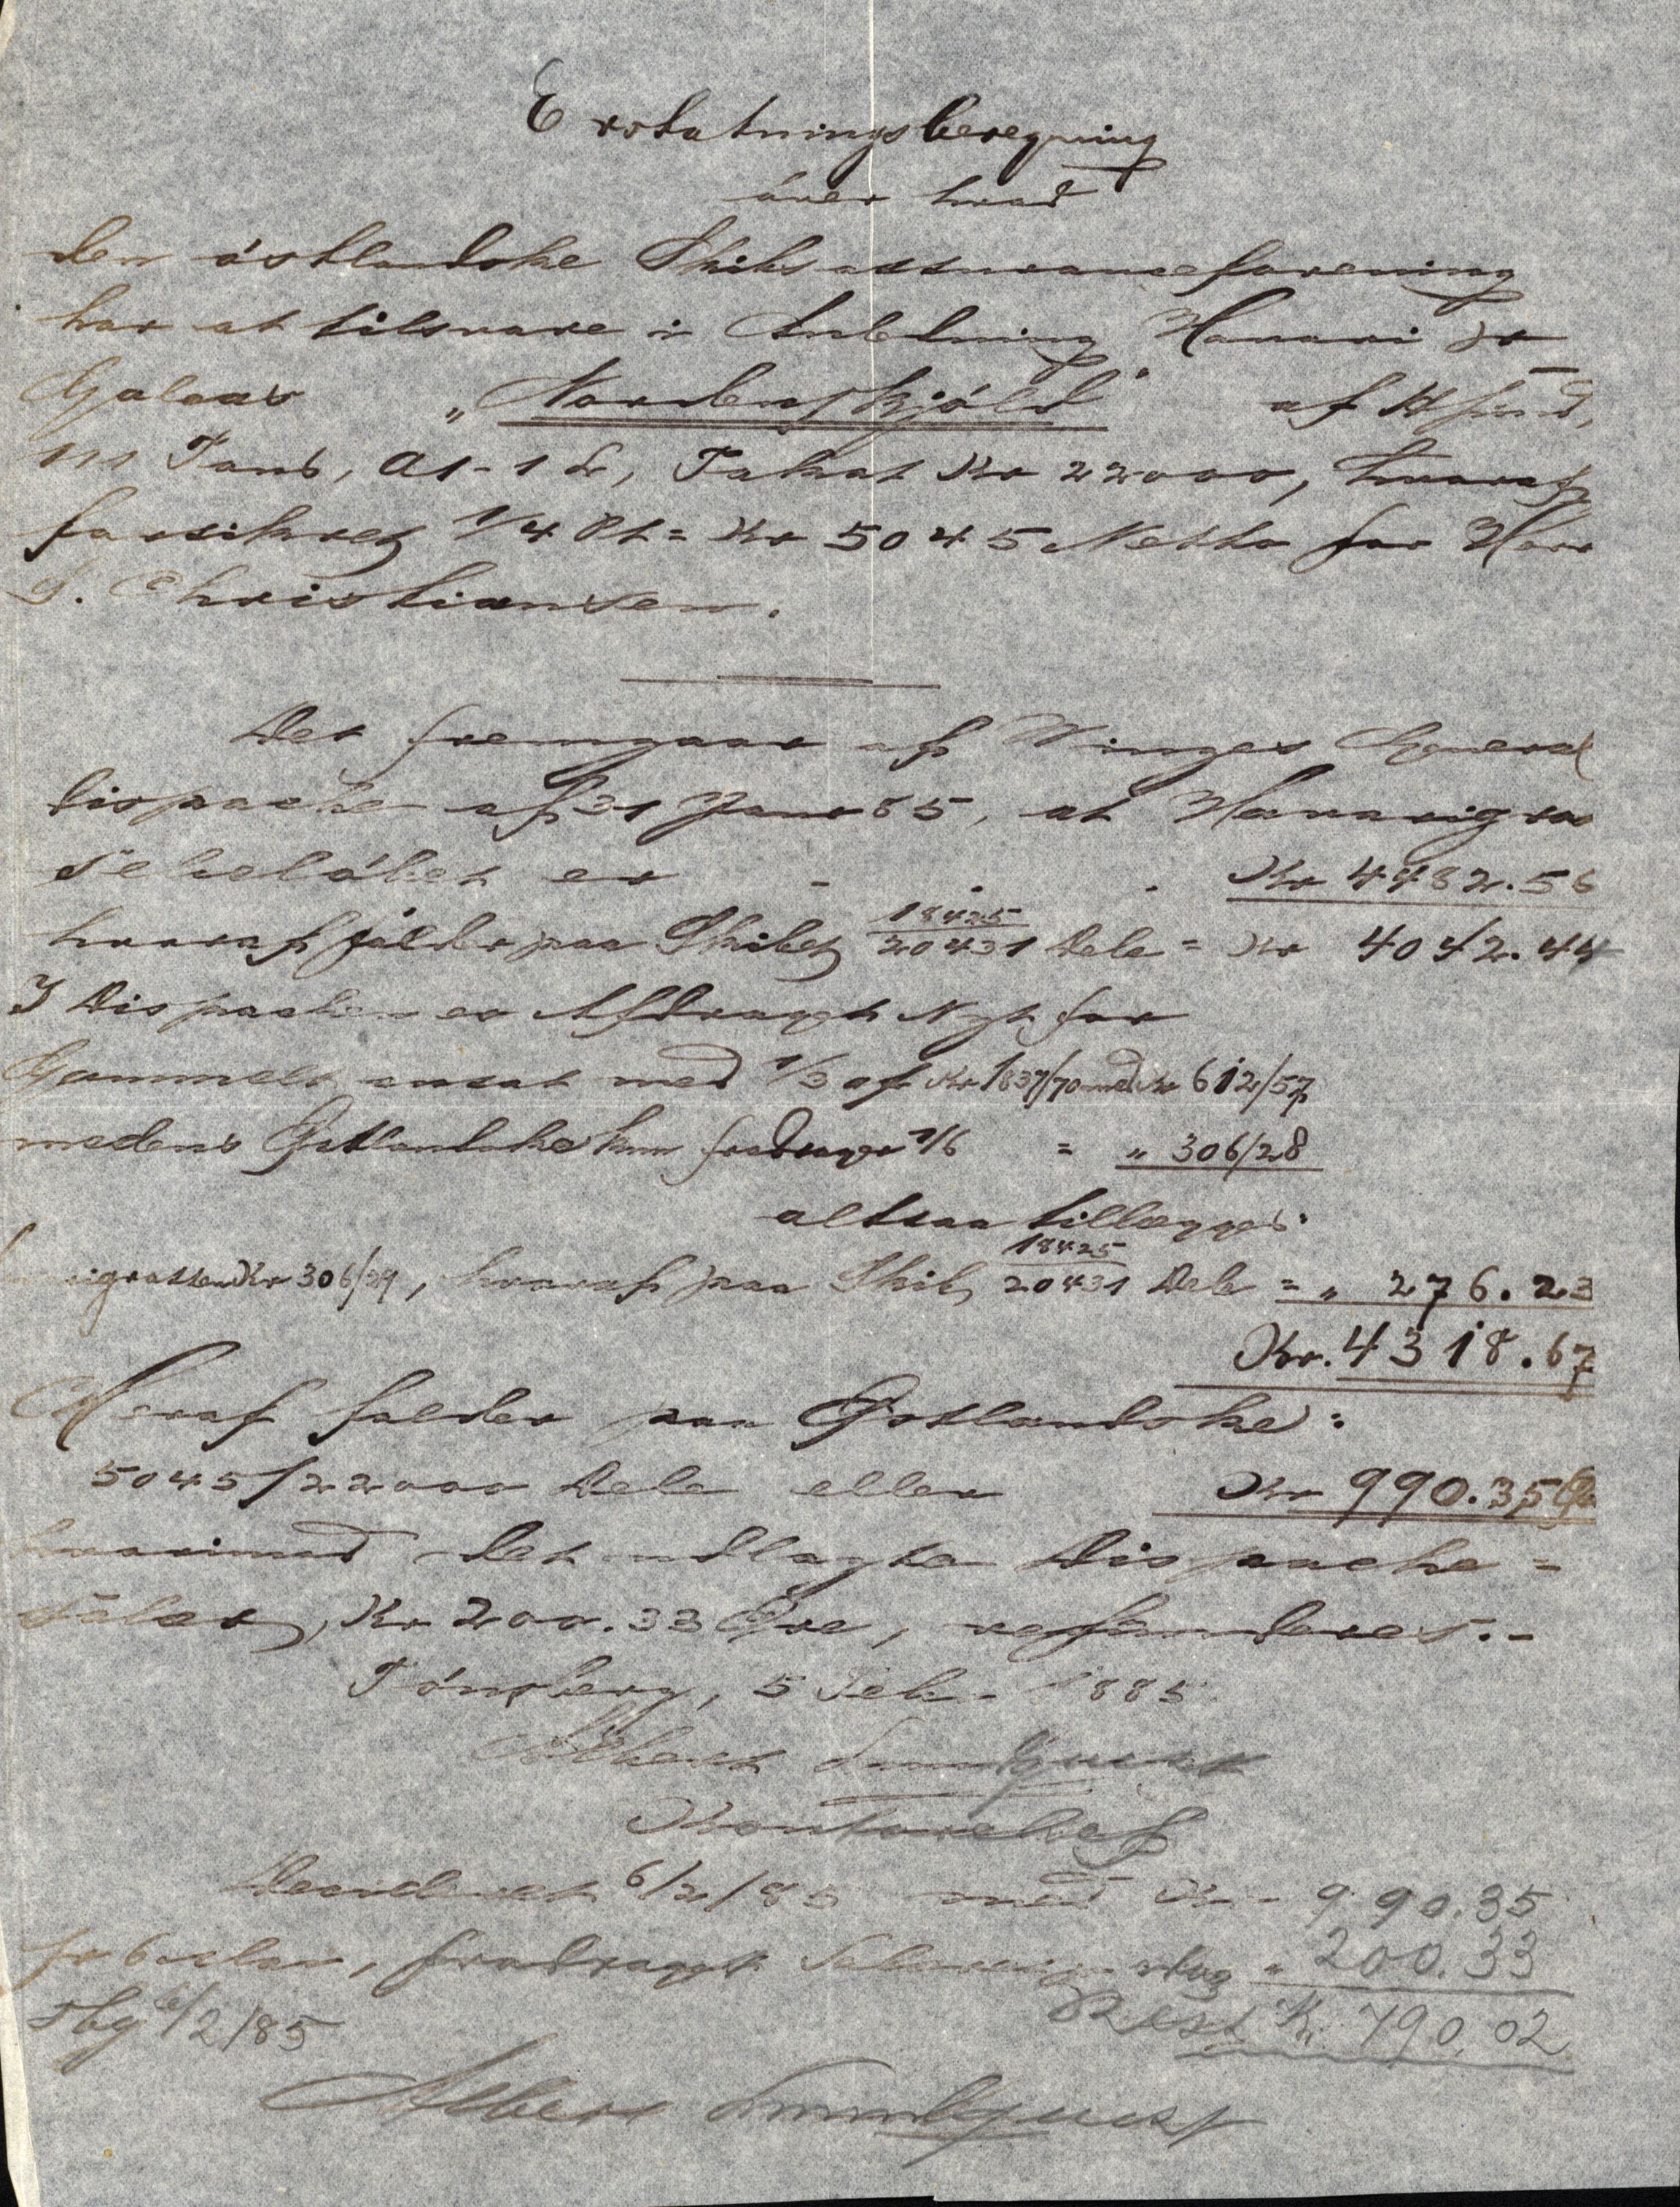 Erstatningsberegning
over hvad
den østlandske Skibsassuranceforening
har at tilsvare i Anledning Havari pr
Galeas „Nordenskjöld" af Krfund,
111 Tons, A1-1 d, Taxat Kr 22000, hvoraf
forsikret 1/4 Pt = Kr 5045 Netto for Herr
S. Christiansen.
Det fremgaar af Winges General
dispache af 31 Janr 85, at Havarigros
sebeløbet er - - - Kr 4482.56
hvoraf falder paa Skibet 18425/20431 Dele = Kr 4042.44
I Dispachen er Afdraget Nyt for
Gammelt ansat med 1/3 af Kr 1837/70 med Kr 612/57
medens Østlandske kun fradrager 1/6 = „ 306/28
altsaa tillægges
grossen Kr 306/29, hvoraf paa Skib 18425/20431 Dele = „ 276.23
Kr. 4318.67
Heraf falder paa Østlandske:
5045/22000 Dele eller Kr 990.35 Øre
hvorimod det udlagte Dispache-
salær, Kr 200.33 Øre, refunderes.-
Tønsberg, 5 Feb. 1885
Albert Lundquist
Kontorchef
6/2/85 med Kr 990.35
fradraget „ 200.33
Tbg 6/2/85 Rest Kr. 790.02
Albert Lundquist